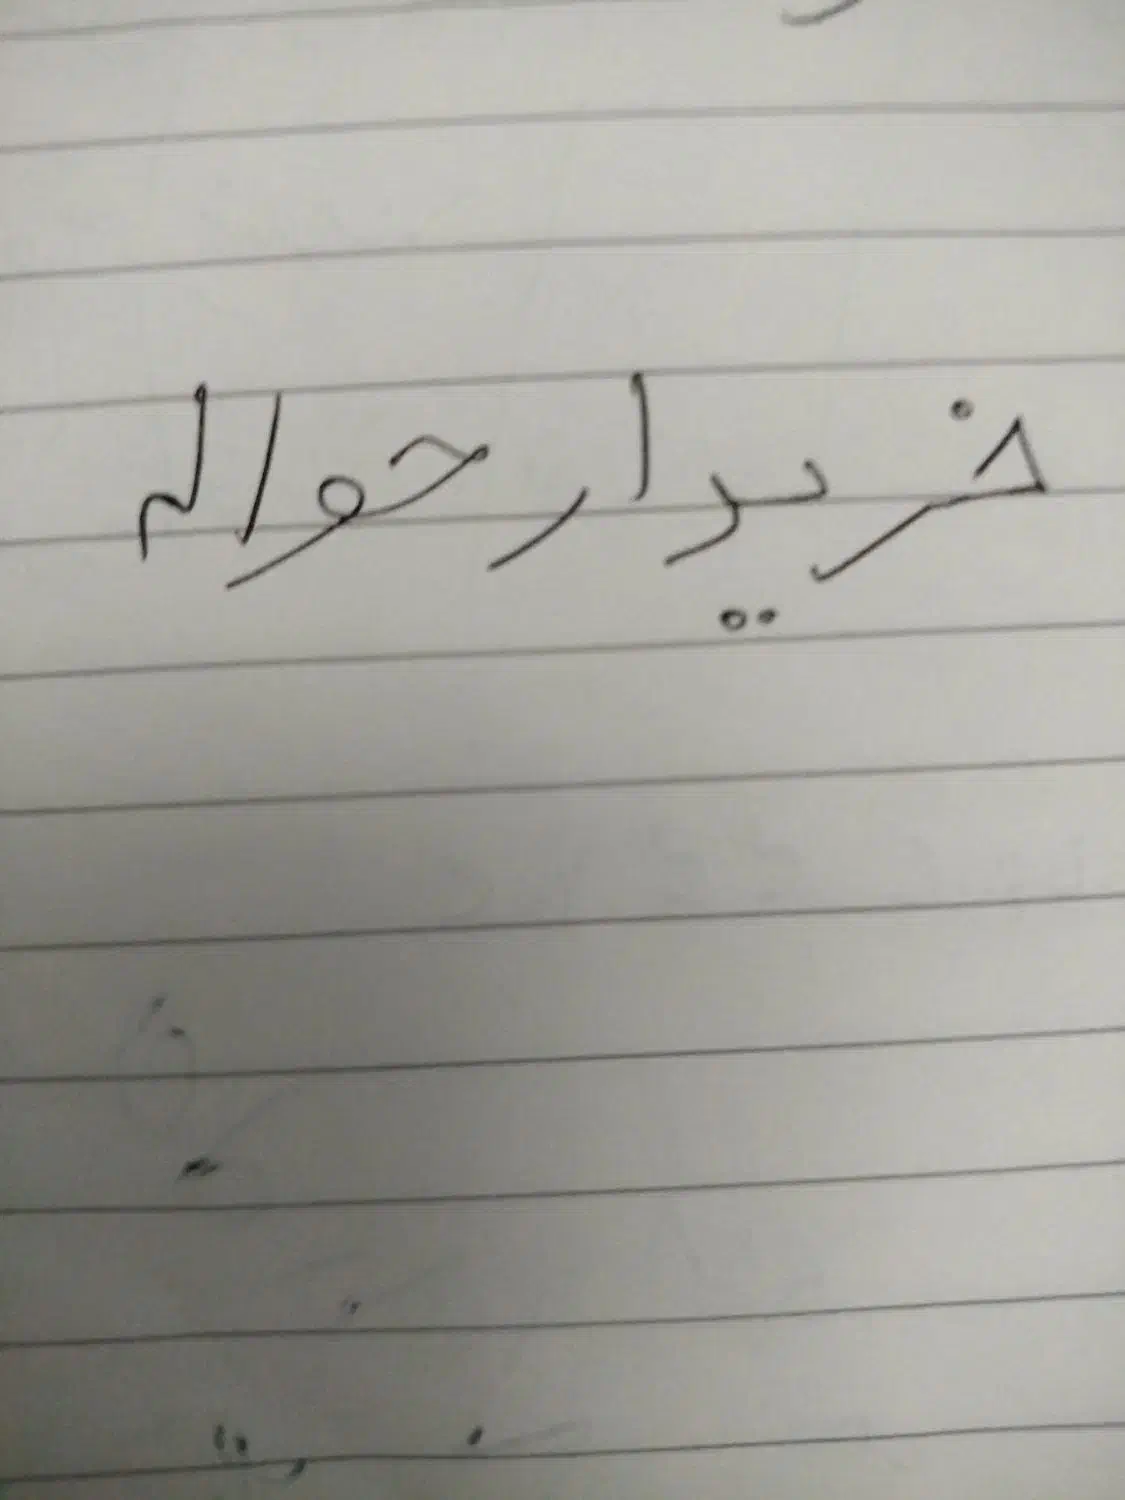 خریدار حواله